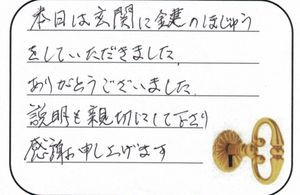 本日は玄関に鍵のほじゅう
をしていただきました
ありがとうございました.
説明も親切にして下さり
感謝お申し上げます